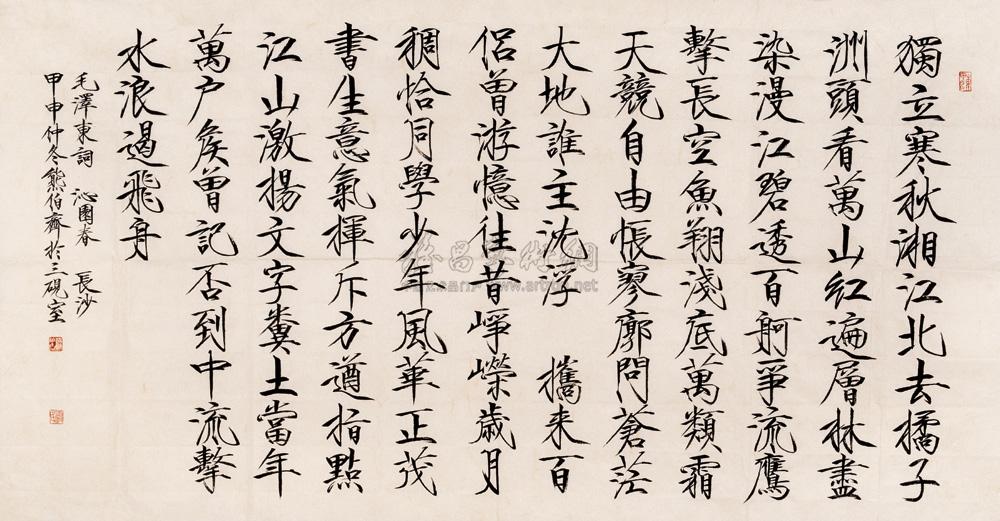 獨立寒秋湘江北去橘子
洲頭看萬山紅遍層林盡
染漫江碧透百舸爭流鷹
擊長空魚翔淺底萬類霜
天競自由悵寥廓問蒼茫
大地誰主沈浮 攜来百
侣曾游憶往昔崢嶸歲月
稠恰同學少年風華正茂
書生意氣揮斥方遒指點
江山激揚文字糞土當年
萬户矦曾記否到中流擊
水浪遏飛舟
毛澤東詞 沁園春 長沙
甲申仲冬熊伯齊於三硯室